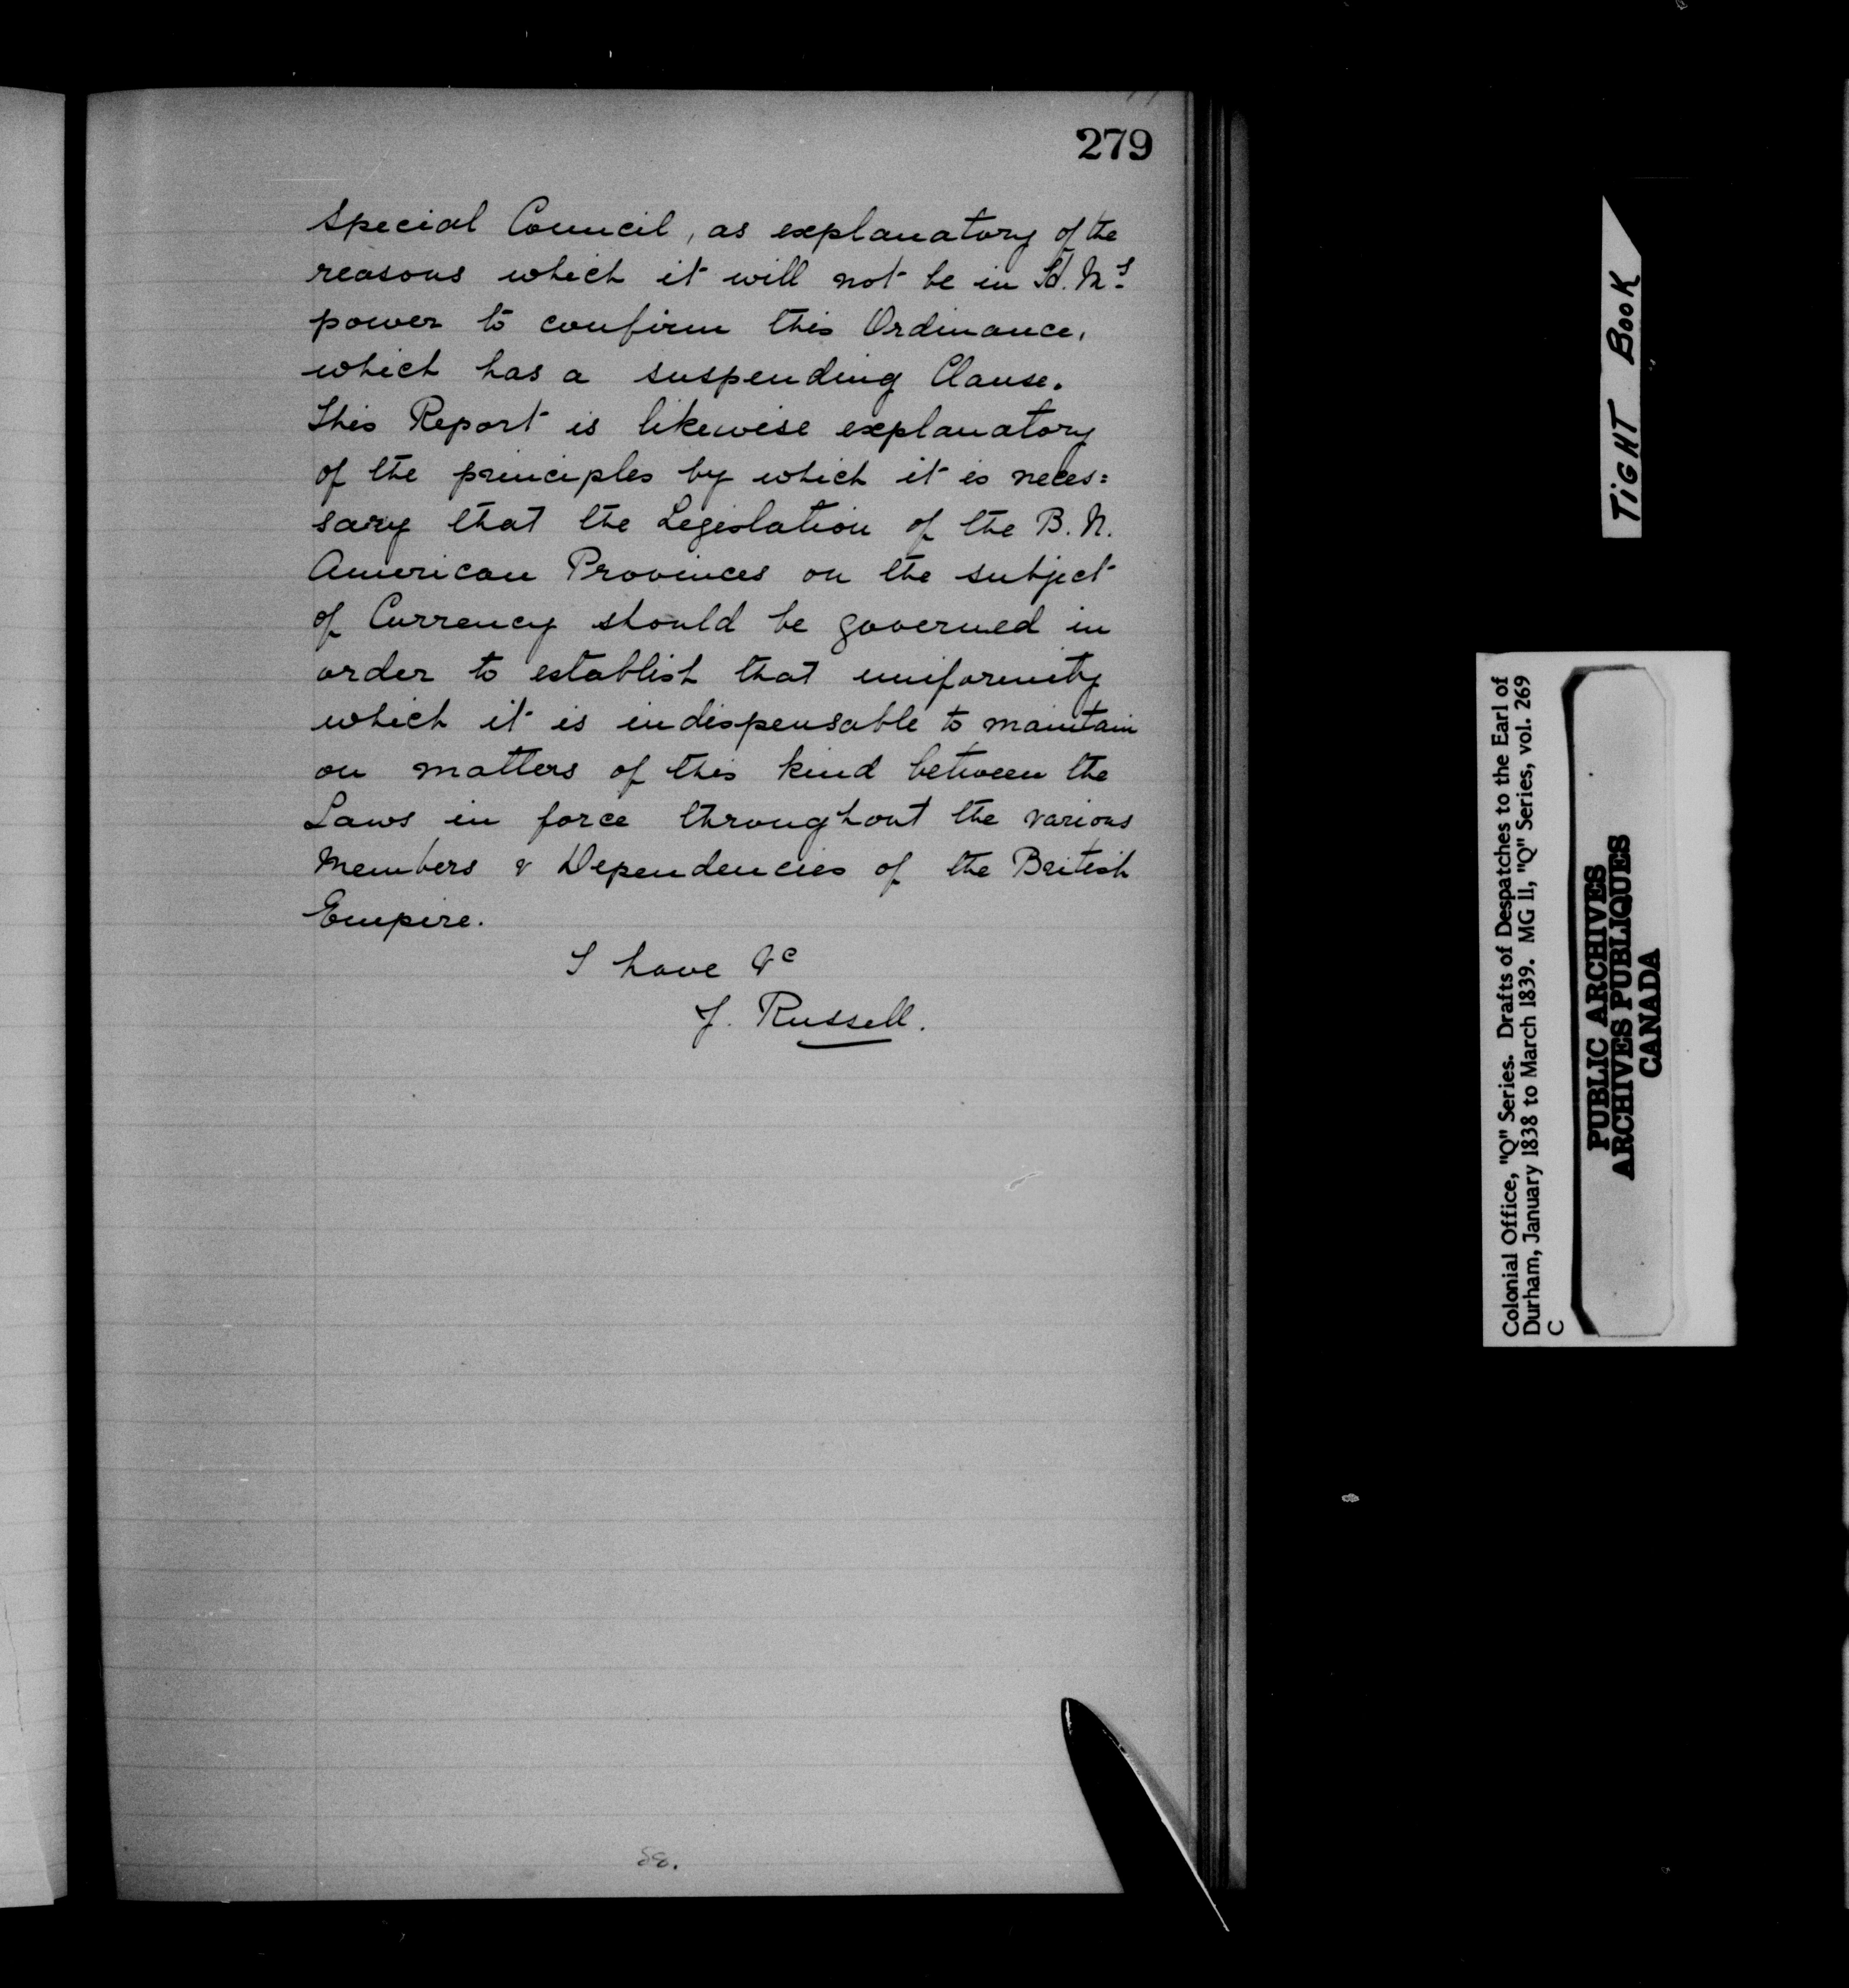 279
Special Council, as explanatory of the
reasons which it will not be in H.M's
power to confirm this Ordinance,
which has a suspending Clause.
This Report is likewise explanatory
of the principles by which it is neces=
sary that the Legislation of the B.N.
American Provinces on the subject
of Currency should be governed in
order to establish that uniformity
which it is indispensable to maintain
on matters of this kind between the
Laws in force throughout the various
Members & Dependencies of the British
Empire.
I have &c
J. Russell.
TIGHT BOOK
Colonial Office, "Q" Series. Drafts of Despatches to the Earl of
Durham, January 1838 to March 1839. MG 11, "Q" Series, vol. 269
C
PUBLIC ARCHIVES
ARCHIVES PUBLIQUES
CANADA